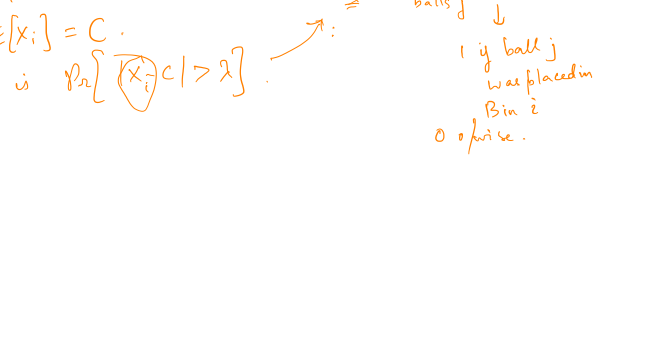 E[Xi] = C.
is Pr[ |Xi - C| > λ ].
= balls j
:
1 if ball j
was placed in
Bin i
0 o/wise.